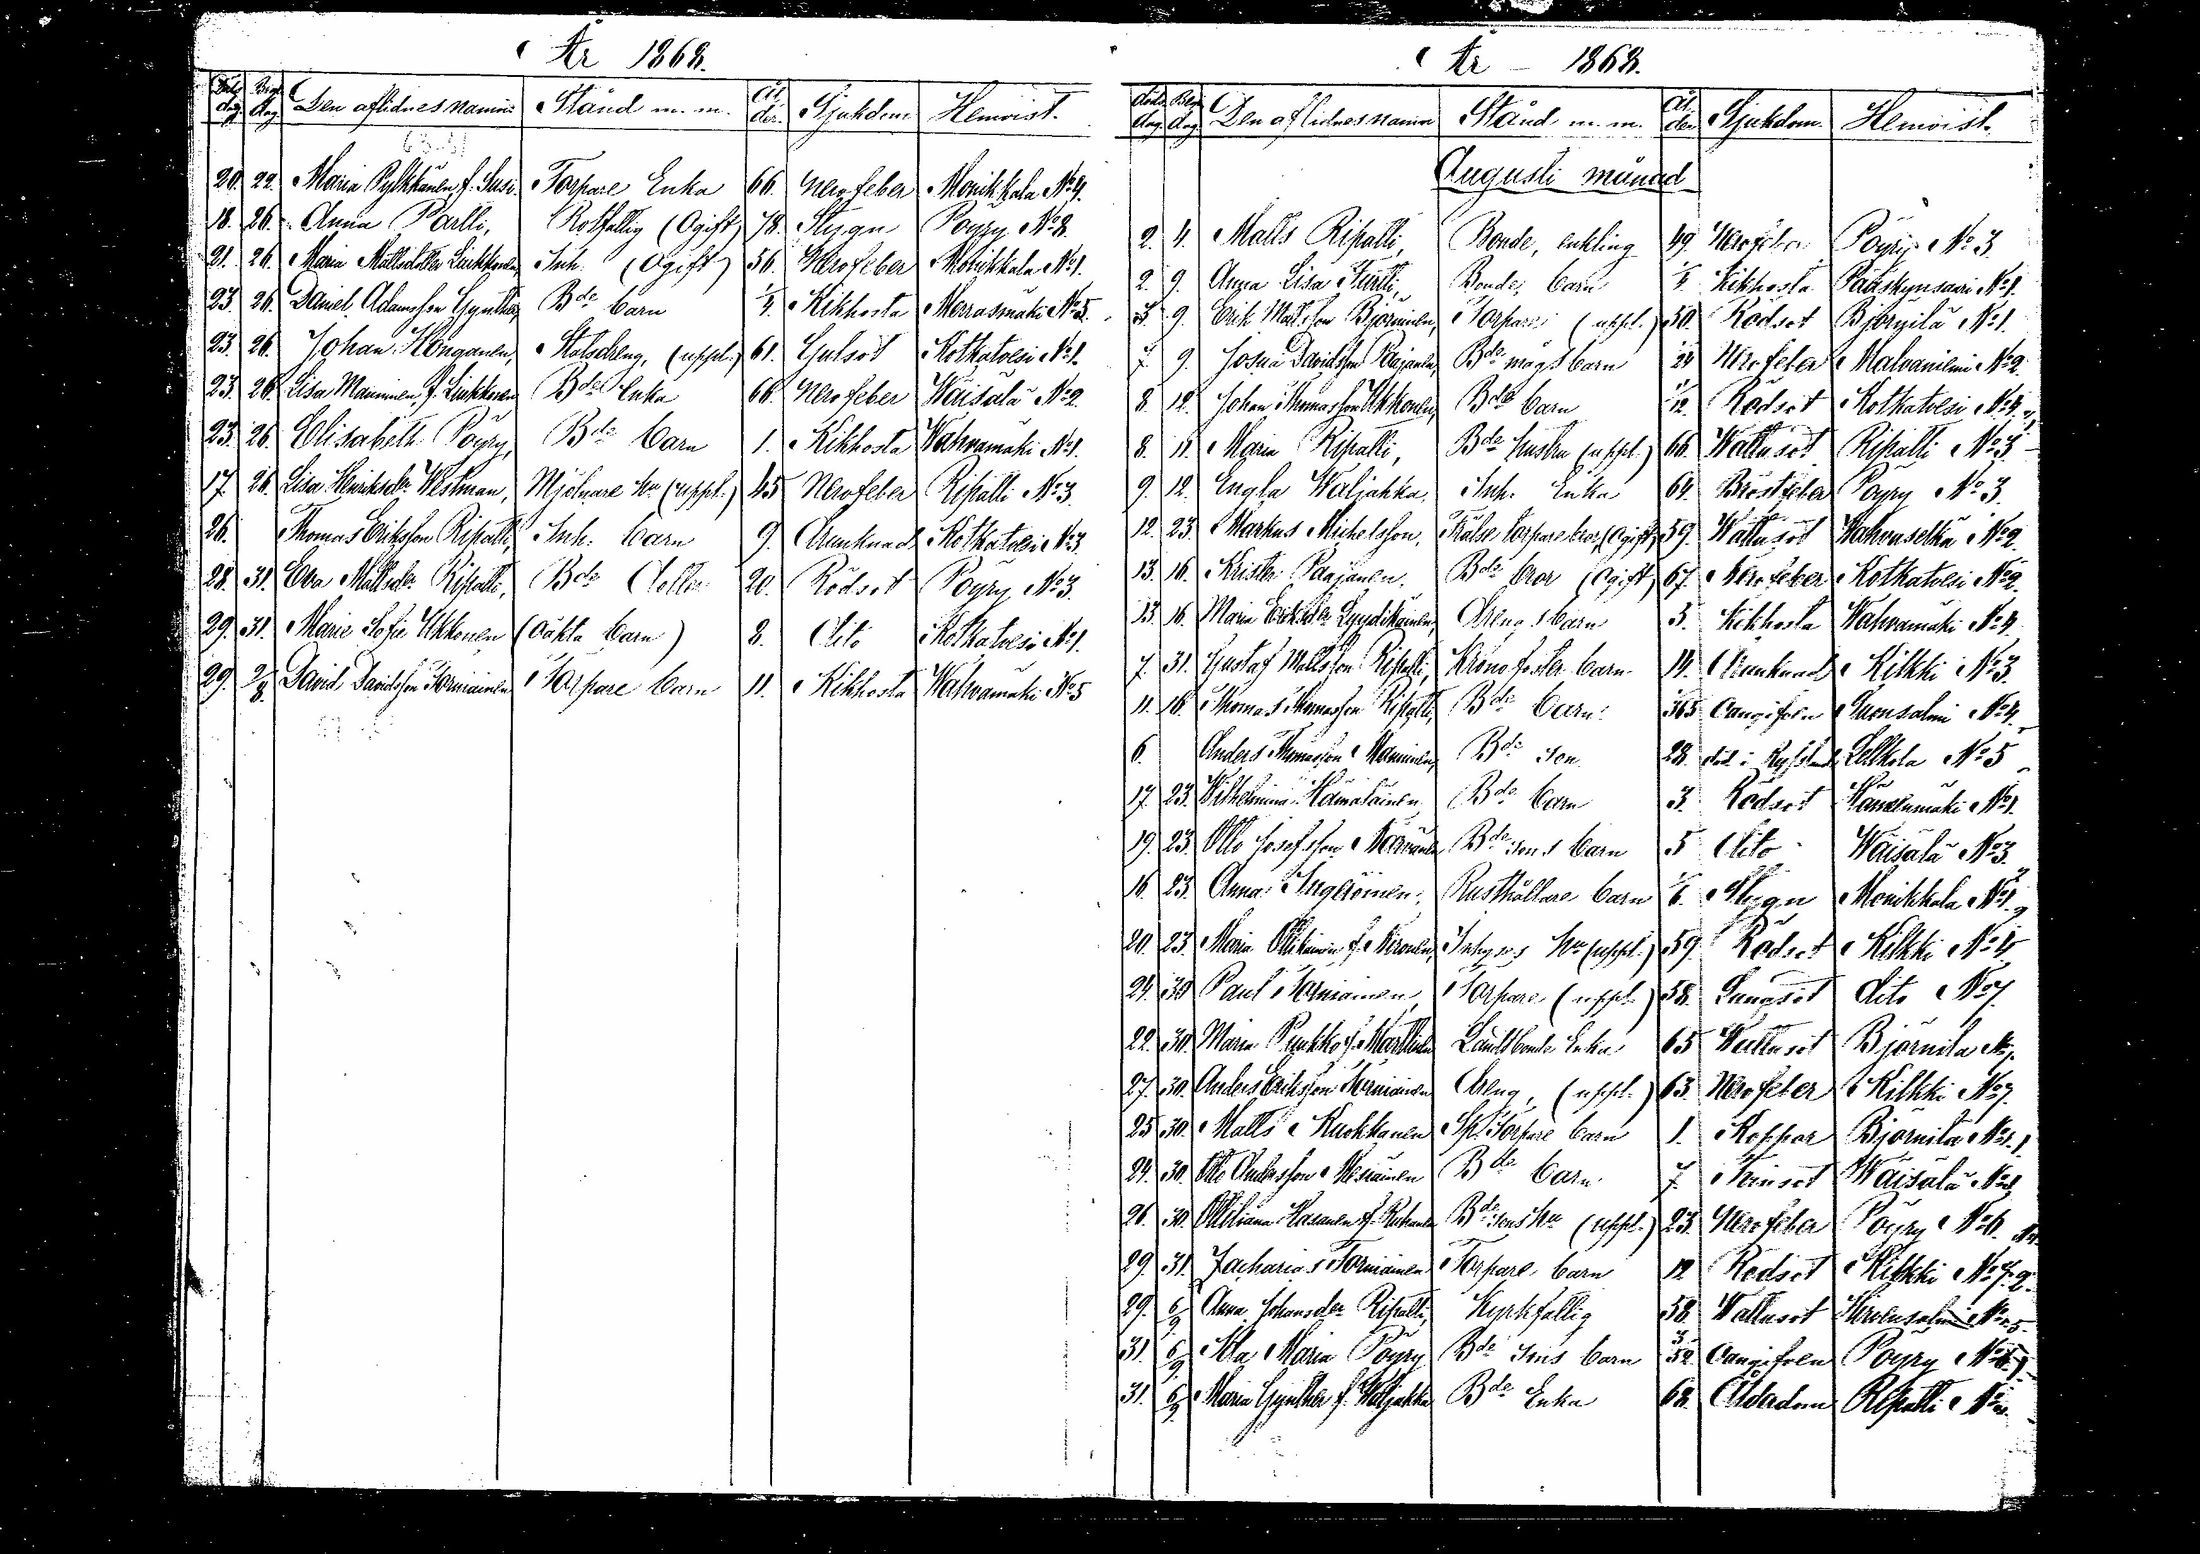 År 1868.
Döds dag Begr. dag Den aflidnes namn Stånd m. m. Ål der. Sjukdom Hemvist.
20. 22. Maria Pylkkänen f. Susi Torpare Enka 66. Nervfeber Monikkala No 4.
18. 26. Anna Partti, Rotfattig (Ogift) 78. Stygn Pöyry No 8.
21. 26. Maria Mattsdotter Liukkonen, Inh. (Ogift) 56. Nervfeber Monikkala No 1.
23. 26. Daniel Adamsson Gynther, Bde barn Kikhosta Merrasmäki No 5.
23. 26. Johan Honganen, Stotsdreng, (uppl.) 61. Gulsot Kotkatvesi No 1.
23. 26. Lisa Manninen, f. Liukkonen Bde Enka 66. Nervfeber Wäisälä No 2.
23. 26. Elisabeth Pöyry, Bde barn 1. Kikhosta Wahvamäki No 1.
17. 26. Lisa Henriksdr Westman, Mjölnare hu (uppl.) 45 Nervfeber Ripatti No 3.
26. Thomas Eriksson Ripatti, Inh. barn 9. Drunknad Kotkatvesi No 3
28. 31. Eva Mattsdr Ripatti, Bde Dotter 20. Rödsot Pöyry No 3.
29. 31. Marie Sofie Ukkonen (oäkta barn) 8. Dito Kotkatvesi No 1.
29. 2/8. David Davidsson Torniainen Torpare barn 11. Kikhosta Wahvamäki No 5
År – 1868.
Döds dag. Begr. dag. Den aflidnes namn Stånd m. m. Ål der Sjukdom. Hemvist.
Augusti månad
2. 4. Matts Ripatti, Bonde, enkling 49. Nervfeber Pöyry No 3.
2. 9. Anna Lisa Bonde, barn Kikhosta Pääskynsaari No 1.
3. 9. Erik Matsson Björninen, Torpare (uppl.) 50. Rödsot Björnilä No 1.
7. 9. Josua Davidsson Paajanen, Bde mågs barn Nervfeber Malvaniemi No 2.
8. 12. Johan Thomasson Ukkonen, Bde barn Rödsot Kotkatvesi No 4.
8. 11. Maria Ripatti, Bde hustru (uppl.) 66. Wattusot Ripatti No 3
9. 12. Engla Waljakka, Inh. Enka 64. Bröstfeber Pöyry No 3.
12. 23. Markus Michelsson, Frälse torpare bror, (Ogift) 59. Wattusot Wahvaselkä No 2.
13. 16. Krister Paajanen. Bde bror (Ogift) 67. Nervfeber Kotkatvesi No 2.
13. 16. Maria Eriksdr Lyydikäinen, Drengs barn 5. Kikhosta Wahvamäki No 4.
7. 31. Gustaf Mattsson Ripatti, Krono foster barn 14. Drunknad Kilkki No 3.
11. 16. Thomas Thomasson Ripatti, Bde barn Oangifven Suonsalmi No 4.
6. Anders Thomasson Manninen, Bde son 28. död i Ryssland Lelkola No 5
17. 23. Wilhelmina Hämäläinen Bde barn 3. Rödsot No 1.
19. 23. Otto Josefsson Bde sons barn 5 Dito Wäisälä No 3.
16. 23. Anna Ingeroinen, Rusthållare barn Stygn Monikkala No 1.
20. 23. Maria f. Kironen, Inhyses hu (uppl.) 59. Rödsot Kilkki No 4
24. 30 Paul Torniainen, Torpare (uppl.) 58. Lungsot dito No 7.
22. 30. Maria Punkko f. Marttinen Landtbonde Enka 65 Wattusot Björnilä
27. 30. Anders Eriksson Torniainen Dreng, (uppl.) 63. Nervfeber Kilkki No 7.
25 30. Matts Kuokkanen Sp. Torpare barn 1. Koppor Björnilä No 1.
24. 30. Otto Andersson Bde barn 7. Wäisälä
26. 30. Ottiliana Hasanen f. Bde sons hu (uppl.) 23. Nervfeber Pöyry No 6.
29. 31. Zacharias Torniainen Torpare barn 12 Rödsot Kilkki No 7.
29. 6/9 Anna Johansdr Ripatti, Kyrkfattig 58. Wattusot Hirvensalmi No 5.
31. 6/9 Ida Maria Pöyry Bde sons barn 3/52 Oangifven Pöyry
31. 6/9 Maria Gynther f. Waljakka Bde Enka 68. Ålderdom Ripatti